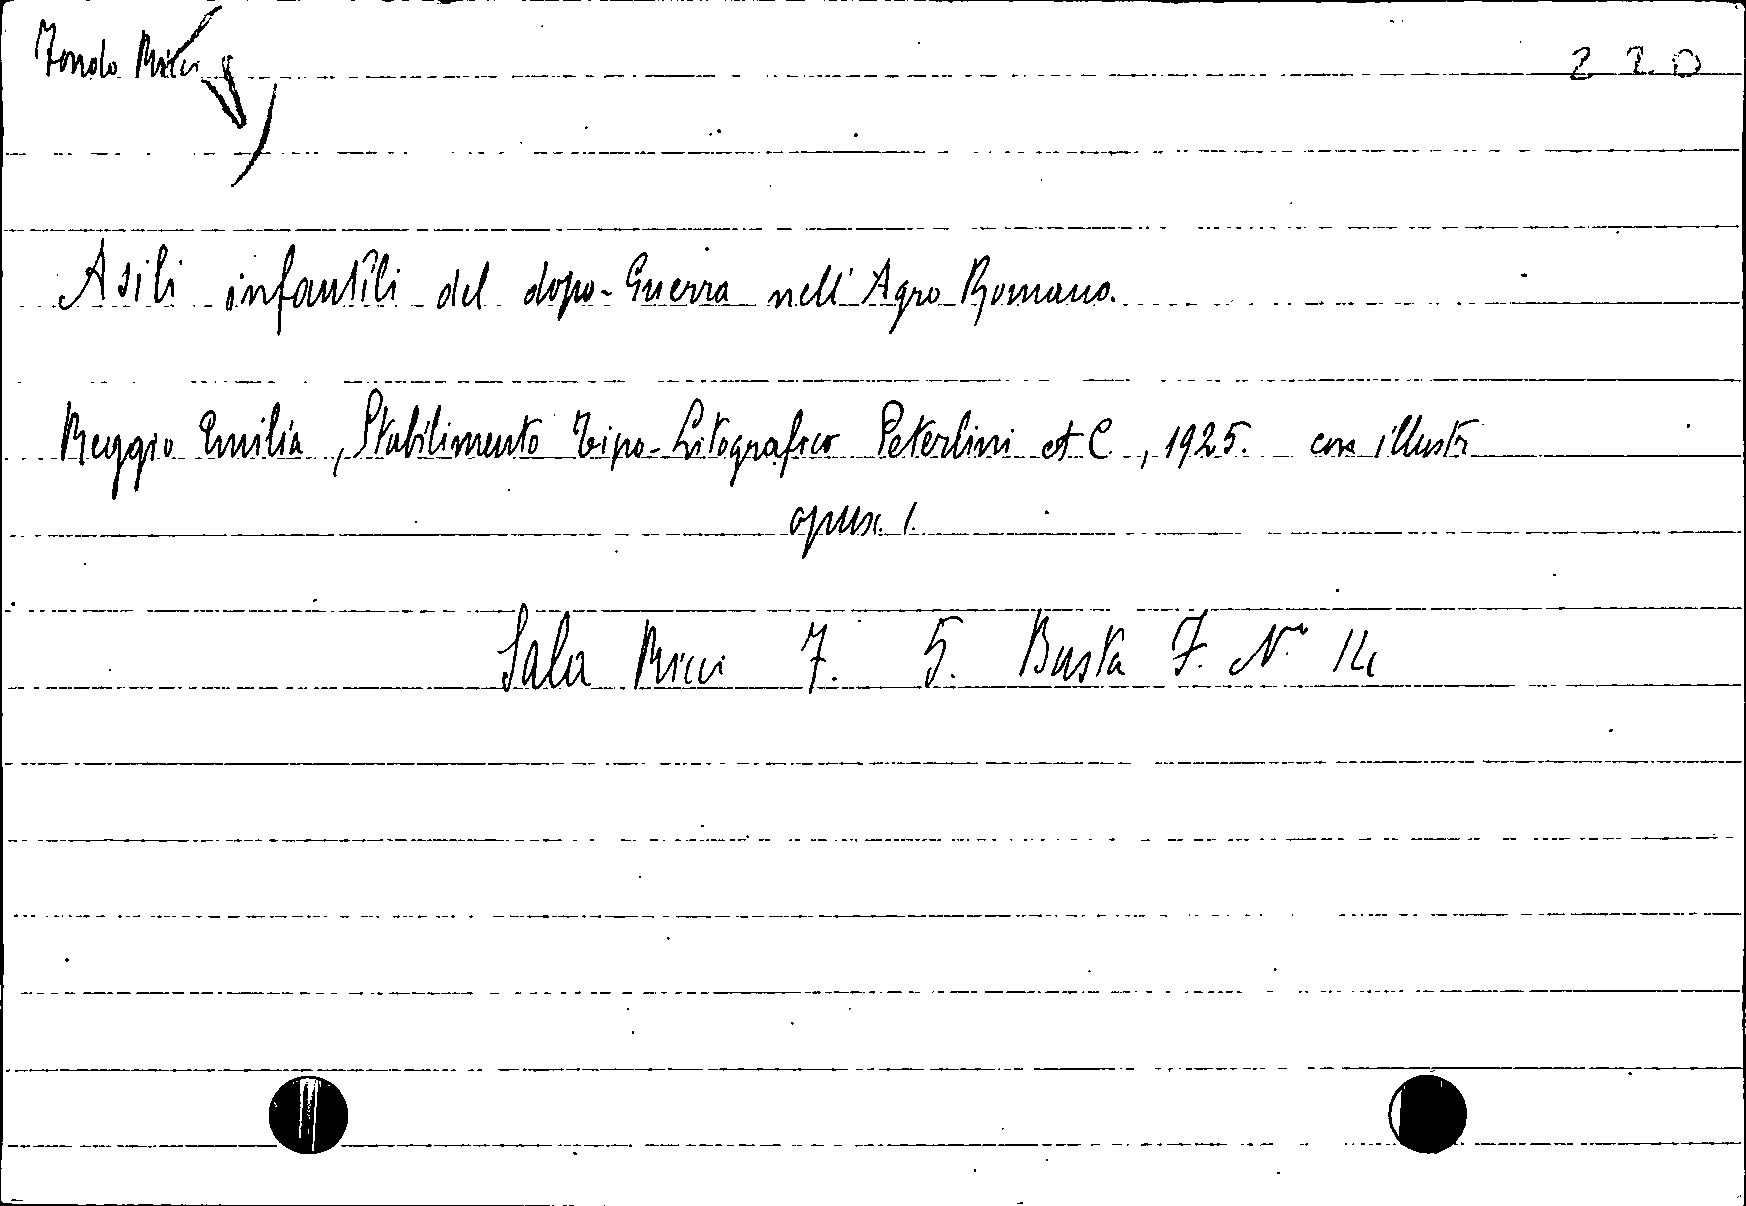 Fondo Ricci
220
Asili infantili del dopo-Guerra nell'Agro Romano.
Reggio Emilia, Stabilimento Tipo-Litografico Peterlini et C, 1925. con illustr
opusc. 1.
Sala Ricci 7. 5. Busta 7. N° 14